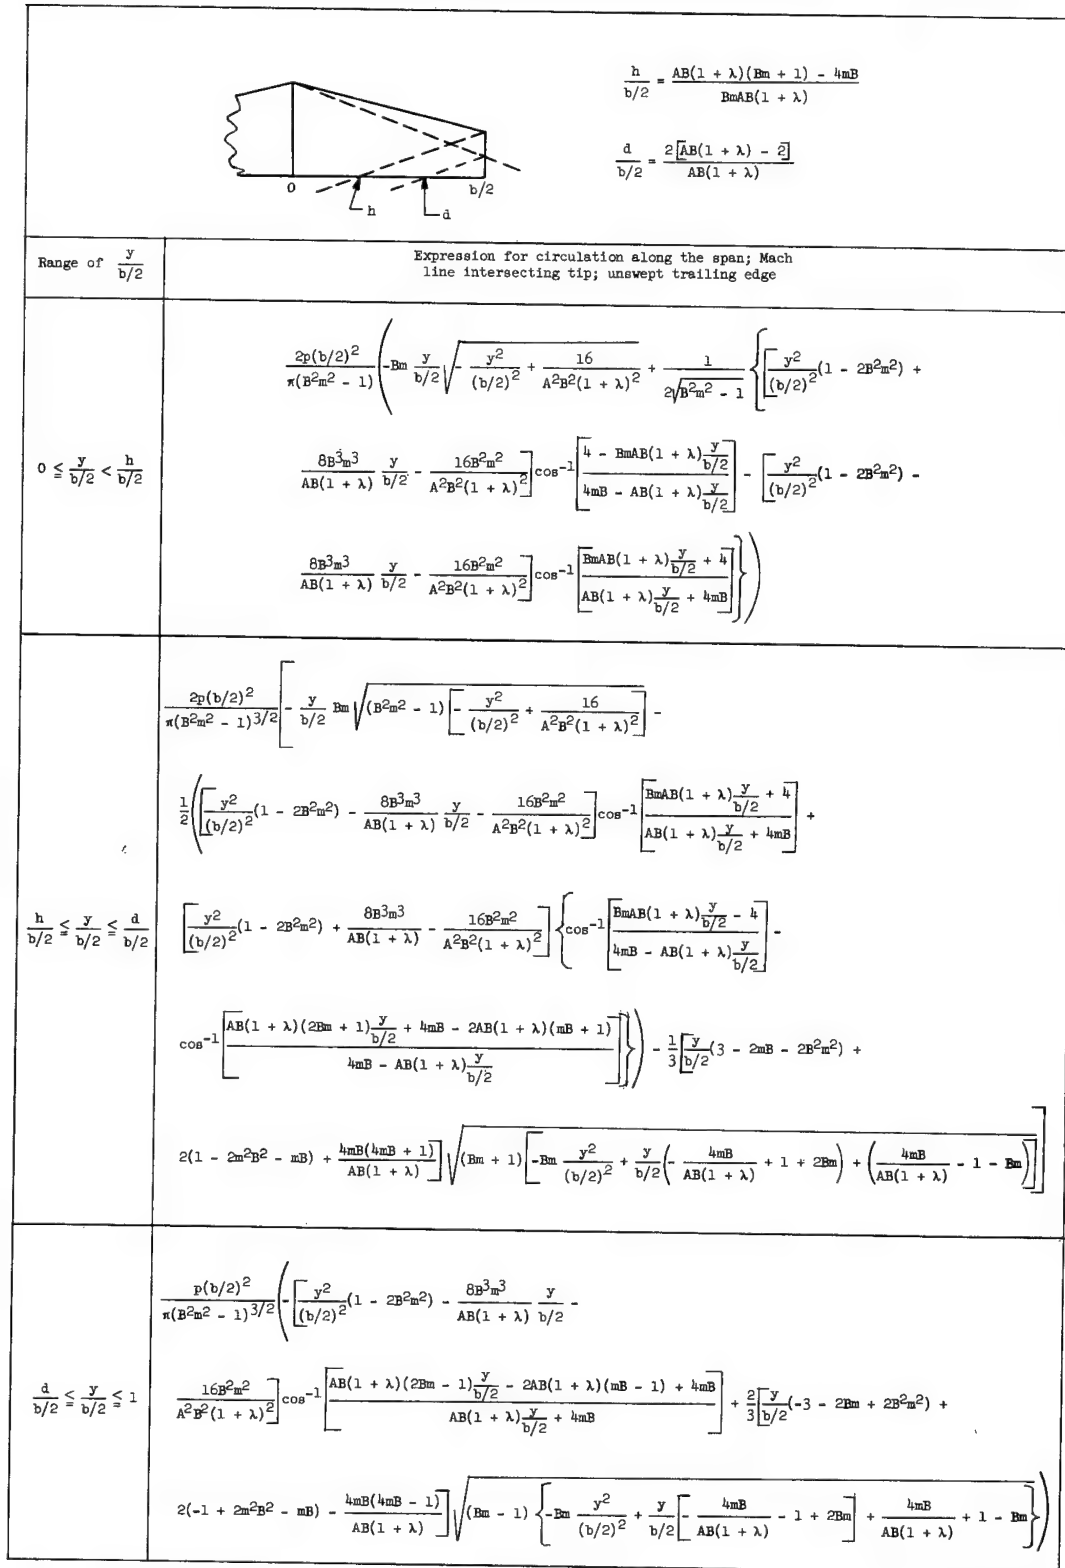 h/(b/2) = [AB(1 + λ)(Bm + 1) - 4mB] / [BmAB(1 + λ)]
d/(b/2) = 2[AB(1 + λ) - 2] / [AB(1 + λ)]
0
b/2
h
d
Range of y/(b/2)
Expression for circulation along the span; Mach
line intersecting tip; unswept trailing edge
0 ≦ y/(b/2) < h/(b/2)
2p(b/2)²/(π(B²m² - 1)) (-Bm y/(b/2) √(-y²/(b/2)² + 16/(A²B²(1 + λ)²)) + 1/(2√(B²m² - 1)) {[y²/(b/2)² (1 - 2B²m²) +
8B³m³/(AB(1 + λ)) y/(b/2) - 16B²m²/(A²B²(1 + λ)²)] cos⁻¹[(4 - BmAB(1 + λ) y/(b/2))/(4mB - AB(1 + λ) y/(b/2))] - [y²/(b/2)² (1 - 2B²m²) -
8B³m³/(AB(1 + λ)) y/(b/2) - 16B²m²/(A²B²(1 + λ)²)] cos⁻¹[(BmAB(1 + λ) y/(b/2) + 4)/(AB(1 + λ) y/(b/2) + 4mB)]})
h/(b/2) ≦ y/(b/2) ≦ d/(b/2)
2p(b/2)²/(π(B²m² - 1)^(3/2)) [- y/(b/2) Bm √((B²m² - 1)[-y²/(b/2)² + 16/(A²B²(1 + λ)²)]) -
1/2 ([y²/(b/2)² (1 - 2B²m²) - 8B³m³/(AB(1 + λ)) y/(b/2) - 16B²m²/(A²B²(1 + λ)²)] cos⁻¹[(BmAB(1 + λ) y/(b/2) + 4)/(AB(1 + λ) y/(b/2) + 4mB)] +
[y²/(b/2)² (1 - 2B²m²) + 8B³m³/(AB(1 + λ)) - 16B²m²/(A²B²(1 + λ)²)] {cos⁻¹[(BmAB(1 + λ) y/(b/2) - 4)/(4mB - AB(1 + λ) y/(b/2))] -
cos⁻¹[(AB(1 + λ)(2Bm + 1) y/(b/2) + 4mB - 2AB(1 + λ)(mB + 1))/(4mB - AB(1 + λ) y/(b/2))]}) - 1/3 [y/(b/2) (3 - 2mB - 2B²m²) +
2(1 - 2m²B² - mB) + 4mB(4mB + 1)/(AB(1 + λ))] √((Bm + 1)[-Bm y²/(b/2)² + y/(b/2) (- 4mB/(AB(1 + λ)) + 1 + 2Bm) + (4mB/(AB(1 + λ)) - 1 - Bm)])]
d/(b/2) ≦ y/(b/2) ≦ 1
p(b/2)²/(π(B²m² - 1)^(3/2)) (-[y²/(b/2)² (1 - 2B²m²) - 8B³m³/(AB(1 + λ)) y/(b/2) -
16B²m²/(A²B²(1 + λ)²)] cos⁻¹[(AB(1 + λ)(2Bm - 1) y/(b/2) - 2AB(1 + λ)(mB - 1) + 4mB)/(AB(1 + λ) y/(b/2) + 4mB)] + 2/3 [y/(b/2) (-3 - 2Bm + 2B²m²) +
2(-1 + 2m²B² - mB) - 4mB(4mB - 1)/(AB(1 + λ))] √((Bm - 1){-Bm y²/(b/2)² + y/(b/2) [- 4mB/(AB(1 + λ)) - 1 + 2Bm] + 4mB/(AB(1 + λ)) + 1 - Bm}))